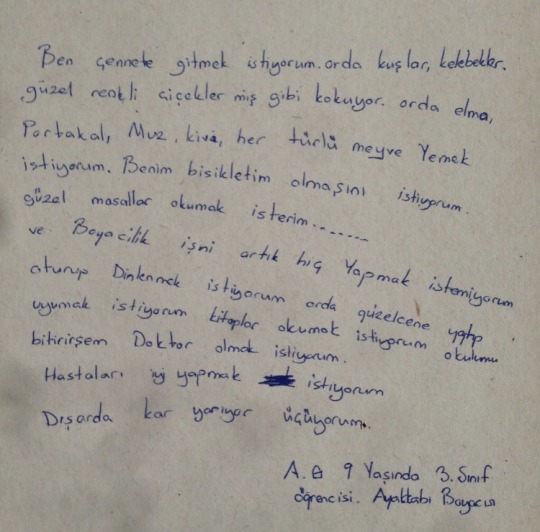 Ben cennete gitmek istiyorum. orda kuşlar, kelebekler.
güzel renkli çiçekler mis gibi kokuyor. orda elma,
Portakal, Muz, kivi, her türlü meyve Yemek
istiyorum. Benim bisikletim olmasını istiyorum.
güzel masallar okumak isterim.......
ve Boyacilik işni artık hiç Yapmak istemiyorum
oturup Dinlenmek istiyorum orda güzelcene yatıp
uyumak istiyorum kitaplar okumak istiyorum okulumu
bitirirsem Doktor olmak istiyorum.
Hastaları iyi yapmak istiyorum
Dışarda kar yarıyor üçüyorum.
A.B 9 Yaşında 3. Sınıf
öğrencisi. Ayakkabı Boyacısı